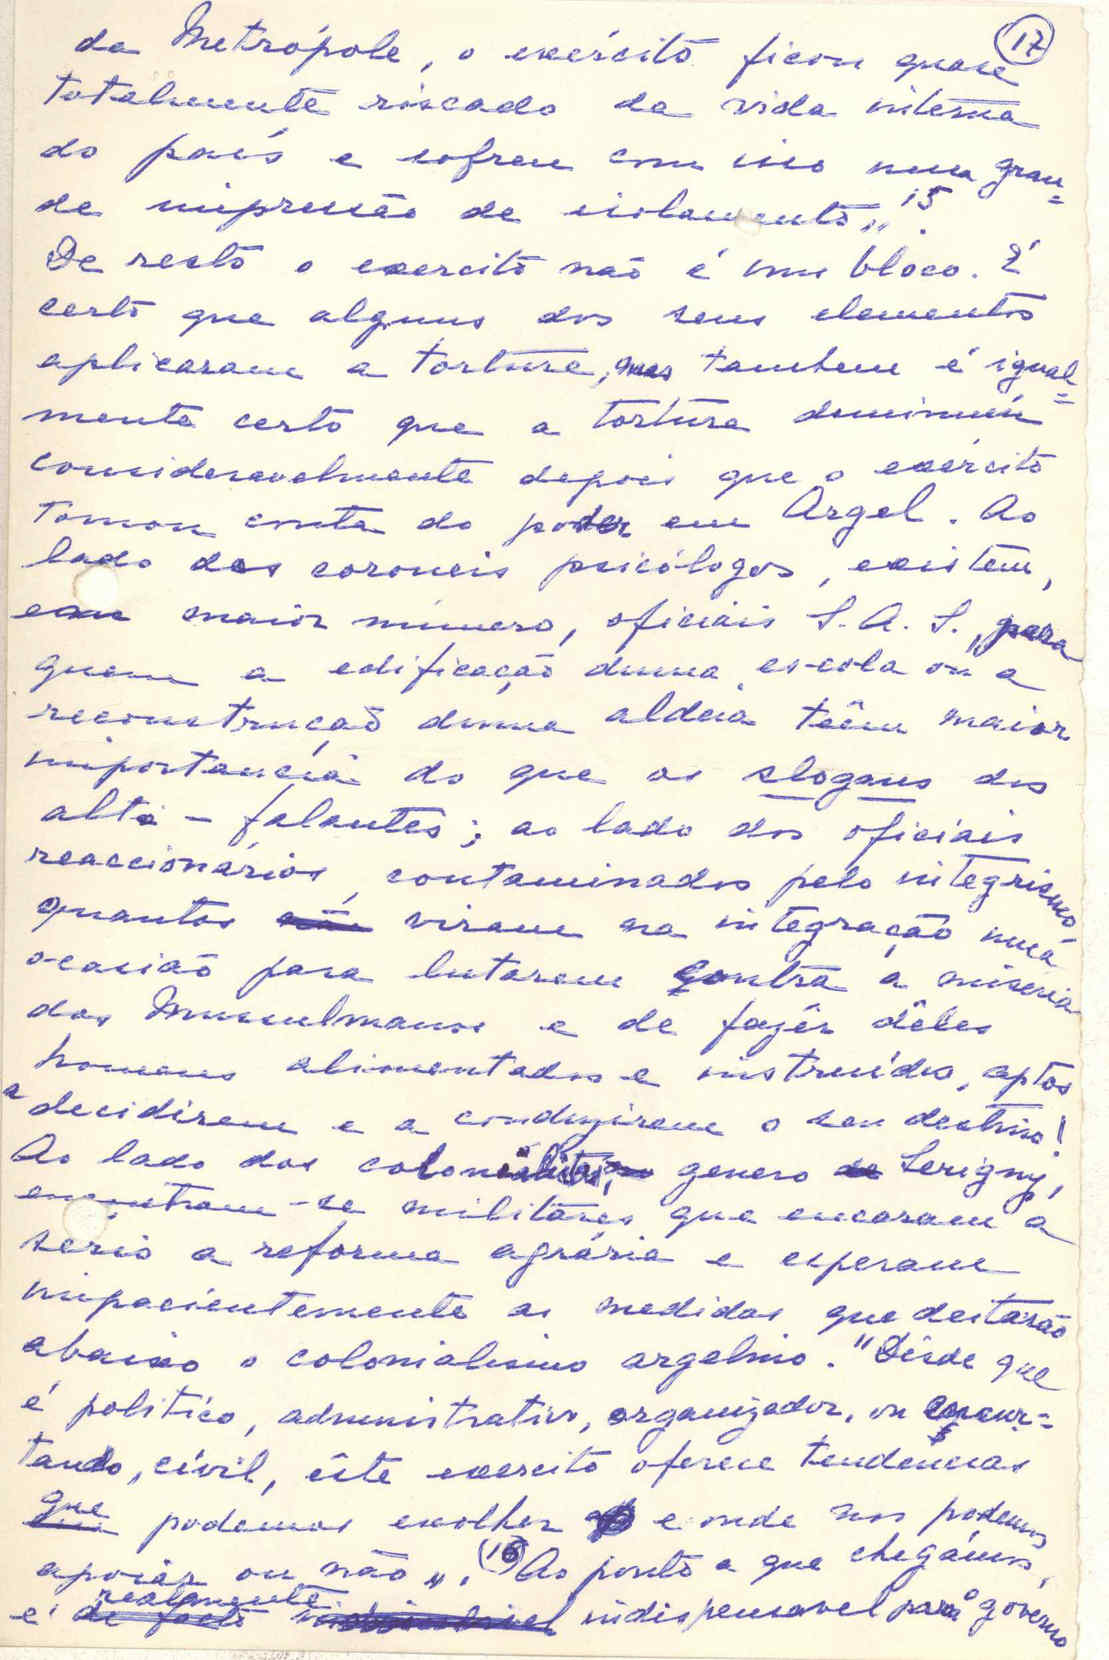 17
da Metrópole, o exército ficou quase
totalmente riscado da vida interna
do país e sofreu com isso numa gran=
de impressão de isolamento„ 15.
De resto o exercito não é um bloco. É
certo que alguns dos seus elementos
aplicaram a tortura, mas tambem é igual=
mente certo que a tortura deminuiu
consideravelmente depois que o exército
tomou conta do poder em Argel. Ao
lado dos coroneis psicólogos, existem,
em maior número, oficiais S.A.S., para
quem a edificação duma escola ou a
reconstrução duma aldeia têem maior
importancia do que os slogans dos
alto-falantes; ao lado dos oficiais
reaccionários, contaminados pelo integrismo,
quantos não viram na integração uma
ocasião para lutarem contra a miseria
dos Mussulmanos e de fazêr dêles
homens alimentados e instruídos, aptos
a decidirem e a conduzirem o seu destino!
Ao lado dos colonialistas, genero de Serigny,
encontram-se militares que encaram a
serio a reforma agrária e esperam
impacientemente as medidas que deitarão
abaixo o colonialismo argelino. "Desde que
é politico, administrativo, organizador, ou encur=
tando, civil, êste exercito oferece tendências
que podemos escolher e onde nos podemos
apoiar ou não„. (16) Ao ponto a que chegámos,
é realmente de facto indispensavel para o governo